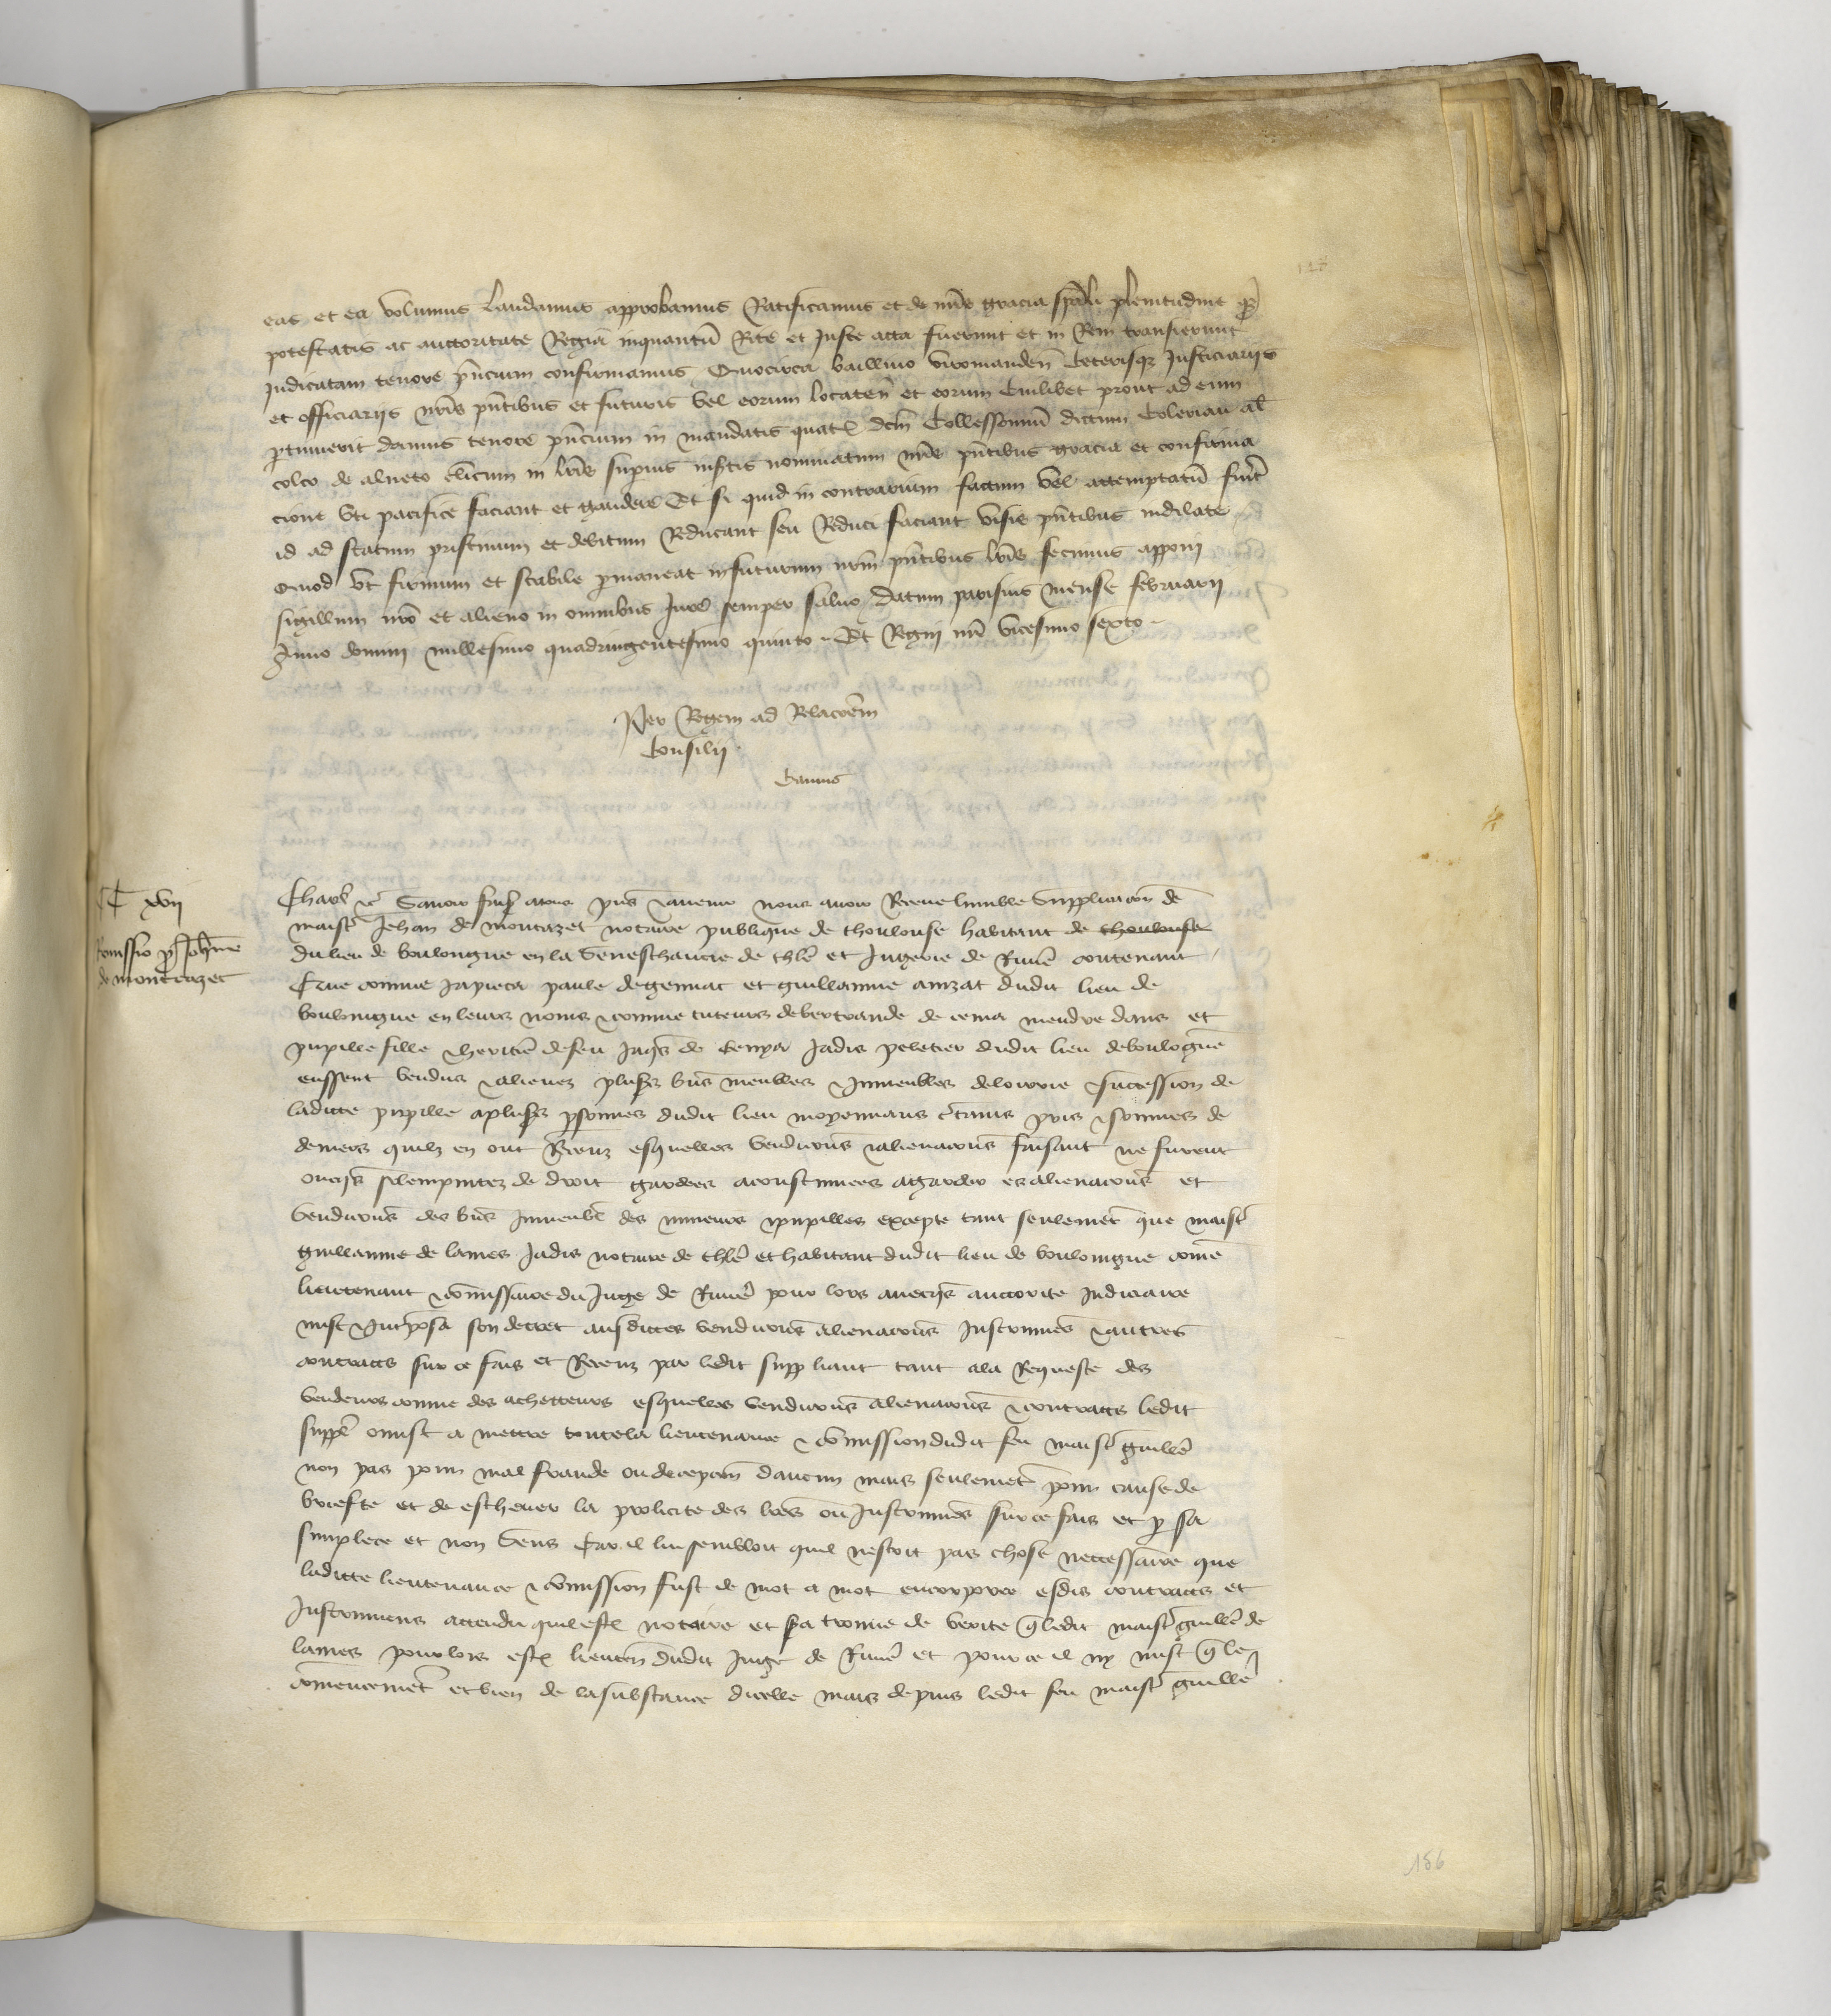 eas et ea volumus laudamus approbamus Ratificamus et de nr̃e gracia sp̃ali plenitudine q̃z
potestatis ac auctoritate Regia inquantũ Rite et Juste acta fuerunt et in Rem transierunt
Judicatam tenore pñcium confirmamus Quocirca baillivo viromanden̄ Ceterisq̃z Justiciariis
et officiariis nr̃is pñtibus et futuris vel eorum locaten̄ et eorum Cuilibet prout ad eum
ptinuerit damus tenore pñcium in mandatis quat dc̃m Collessonnũ dictum al̃
colco de alneto clicum in lr̃is superius insertis nominatum nr̃is pñtibus gracia et confirma
cione uti pacifice faciant et gaudere Et si quid in contrarium factum vel attemptatũ fuit̃
id ad statum pristinum et debitum Reducant seu Reduci faciant visis pñtibus indilate
Quod ut firmum et stabile pmaneat in futurum nr̃m pñtibus lr̃is fecimus apponi
sigillum nr̃o et alieno in omnibus Jure semper salvo Datum parisius mense februarii
Anno domini millesimo quadringentesimo quinto Et Regni nr̃i vicesimo sexto
Per Regem ad Relac̃oem
Consilii
Camus
C xvii
Remissio p Joh̃ne
de montrazet
Charl̃ &c̃ Savoir fais̃ a tous pñs & avenir nous avoir Receue humble supplicac̃on de
maist̃ Jehan de montrazet notaire publique de thoulouse habitant de thoulouse
du lieu de boulongne en la Seneschaucie de thlẽ et Jugerie de Riviẽ contenant
Que comme paule degennac et guillaume amzat dudit lieu de
boulongne en leurs noms & comme tuteurs de bertrande de cenia mendre dans et
pupille fille & heritiẽ de feu Jaqs̃ de Cenya Jadis peletier dudit lieu de boulogne
eussent vendus & alienez plusrs̃ biẽs meubles & Inmeubles de loirrie & succession de
ladicte pupille a plusrs̃ psonnes dudit lieu moyennans c̃tains pris & sommes de
deniers quilz en ont Receuz esquelles vendic̃ons & alienac̃ons faisant ne furent
oncqs̃ solempnitez de droit gardees acoustumees a garder es alienac̃ons et
vendic̃ons des biẽs Inmeubl̃ des mineurs & pupilles excepte tant seulemẽt que maist̃
guillaume de lames Jadis notaire de thlẽ et habitant dudit lieu de boulongne com̃e
lieutenant & com̃issaire du Juge de Riviẽ pour lors avecqs̃ auctorite Judiciaire
mist & Int̃posa son decret ausdictes vendic̃ons alienac̃ons Instrumẽs & autres
contracts sur ce fais et Receuz par ledit suppliant tant a la Requeste des
vendeurs comme des achetteurs esquelles vendic̃ons alienac̃ons & contracts ledit
suppl̃ omist a mettre toute la lieutenance & com̃ission dudit feu maist̃ guill̃e
non pas pour mal fraude ou decepc̃on daucun mais seulemẽt pour cause de
briefte et de eschever la prolixite des lr̃es ou Instrumẽs sur ce fais et p sa
simplece et non sens Car il lui sembloit quil nestoit pas chose neccessaire que
ladicte lieutenance & com̃ission fust de mot a mot encorporee esdis contracts et
Instrumens attendu quil est notoire et sa tronue de verite q̃ ledit maist̃ guill̃e de
lames pour lors est lieuten̄ dudit Juge de Riviẽ et pour ce il ny mist q̃ le
com̃encemẽt et bien de la substance dicelle mais depuis ledit feu maist̃ guill̃e
156